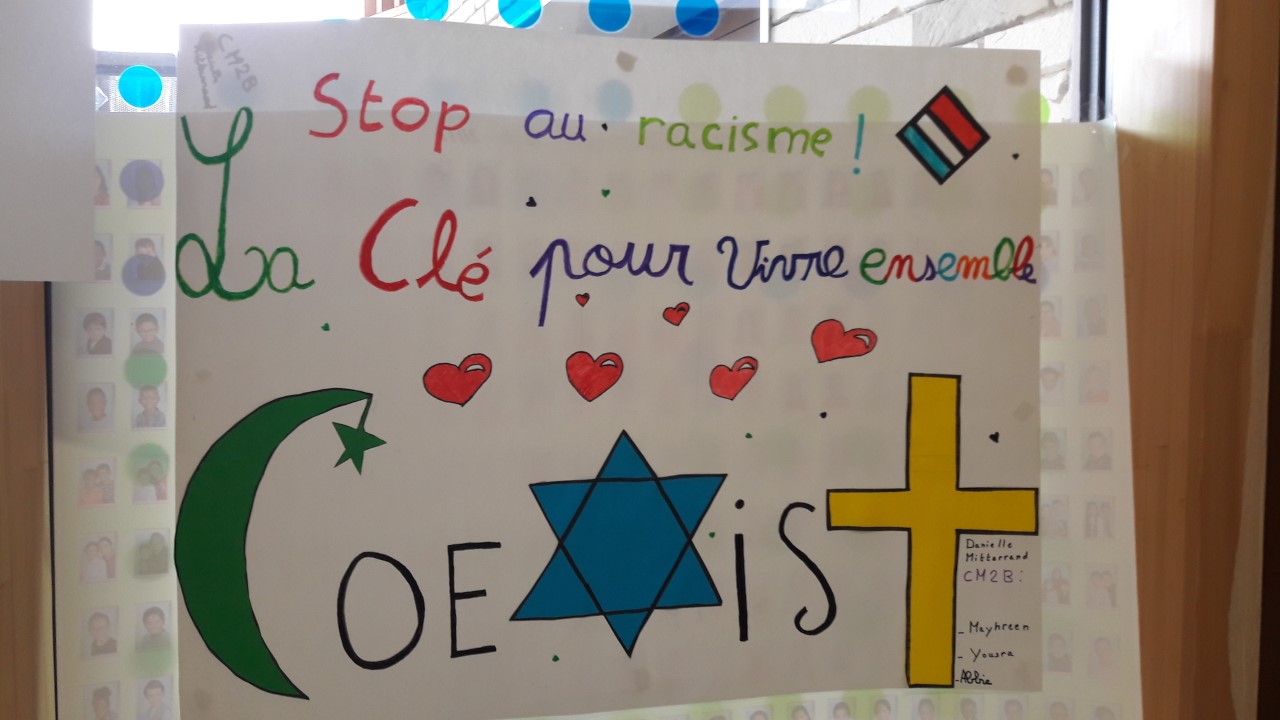 CM2B
Stop au racisme !
La Clé pour Vivre ensemble
COEXisT
Danielle
Mitterrand
CM2B:
- Mayhreen
- Yousra
- Abbie